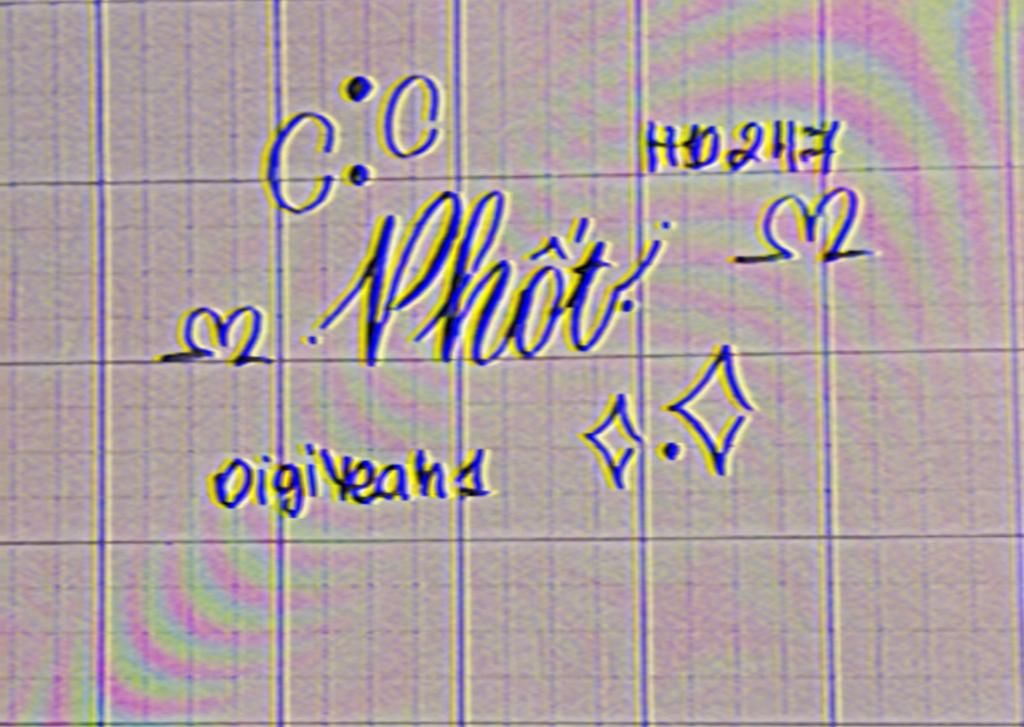 C C
HD247
Phốt
OigiYeah1